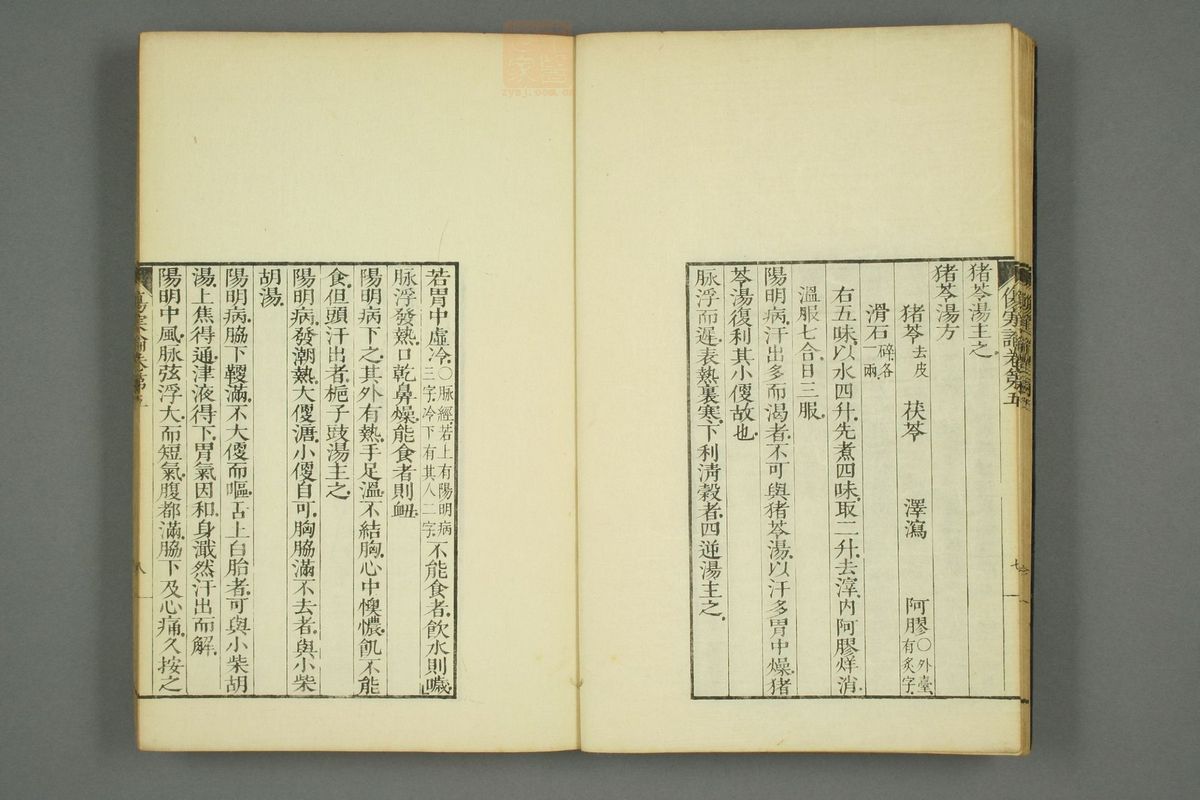 猪苓湯主之
猪苓湯方
猪苓去皮 茯苓 澤瀉 阿膠○外臺有炙字
滑石碎各一兩
右五味以水四升先煮四味取二升去滓内阿膠烊消
溫服七合日三服
陽明病汗出多而渴者不可與猪苓湯以汗多胃中燥猪
苓湯復利其小便故也
脉浮而遲表熱裏寒下利淸穀者四逆湯主之
若胃中虛冷○脉經若上有陽明病三字冷下有其人二字不能食者飮水則噦
脉浮發熱口乾鼻燥能食者則衄
陽明病下之其外有熱手足溫不結胸心中懊憹飢不能
食但頭汗出者梔子豉湯主之
陽明病發潮熱大便溏小便自可胸脇滿不去者與小柴
胡湯
陽明病脇下鞕滿不大便而嘔舌上白胎者可與小柴胡
湯上焦得通津液得下胃氣因和身濈然汗出而解
陽明中風脉弦浮大而短氣腹都滿脇下及心痛久按之
八
zysj.com.cn